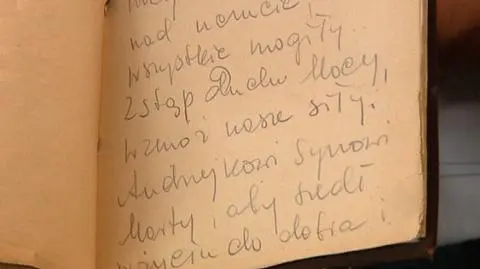 nad
wszystkie mogiły..
Zstąp Duchu Mocy,
wzmoż nasze siły.
Andrzejkowi Synowi
Marty, aby szedł
do dobra i